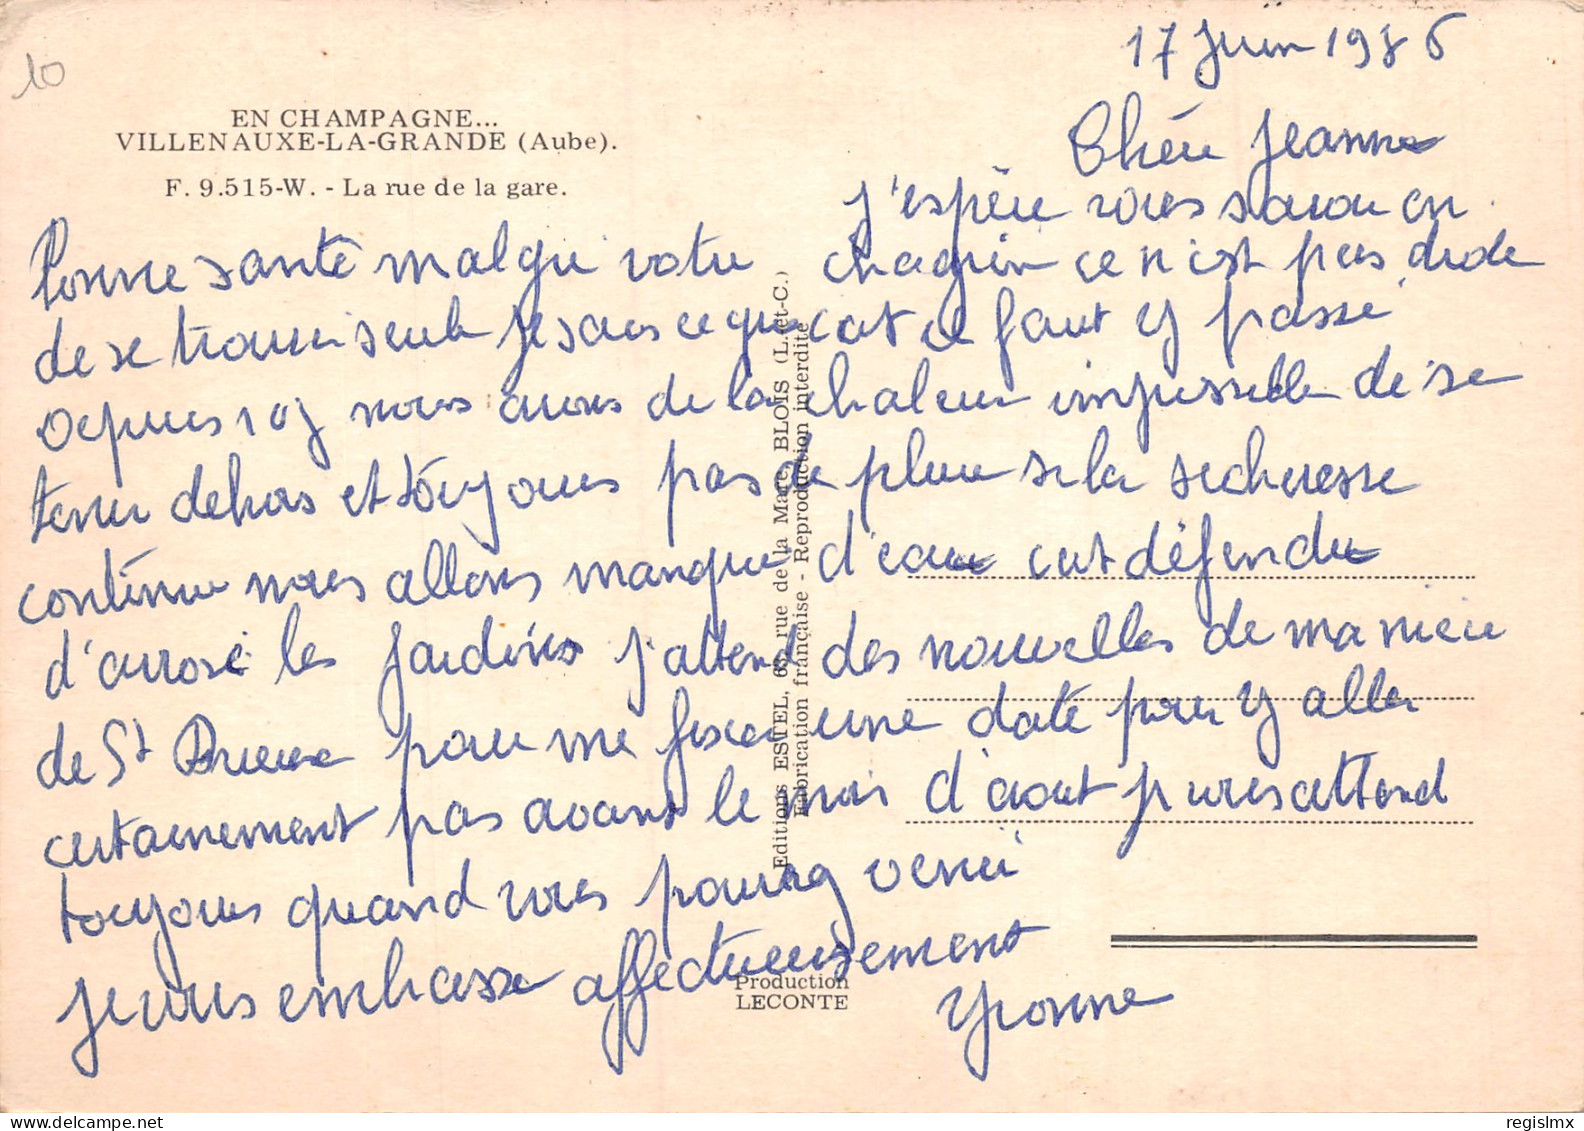 10
17 Juin 1986
EN CHAMPAGNE...
VILLENAUXE-LA-GRANDE (Aube).
F. 9.515-W. - La rue de la gare.
Chère Jeanne
J'espère vous savoir en
bonne santé malgré votre chagrin ce n'est pas drole
de se trouver seule je sais ce que c'est il faut y passé
Depuis 10j nous avons de la chaleur impossible de se
tenir dehors et toujours pas de pluie si la secheresse
continue nous allons manqué d'eau c'est défendu
d'arrosé les jardins j'attend des nouvelles de ma nièce
de St pour me fixer une date pour y aller
certainement pas avant le mois d'aout je vous attend
toujours quand vous pourrez venir
Je vous embrasse affectueusement
Yvonne
Editions ESTEL, 63, rue de la Mare, BLOIS (L.-et-C.)
Fabrication française - Reproduction interdite
Production
LECONTE
regislmx